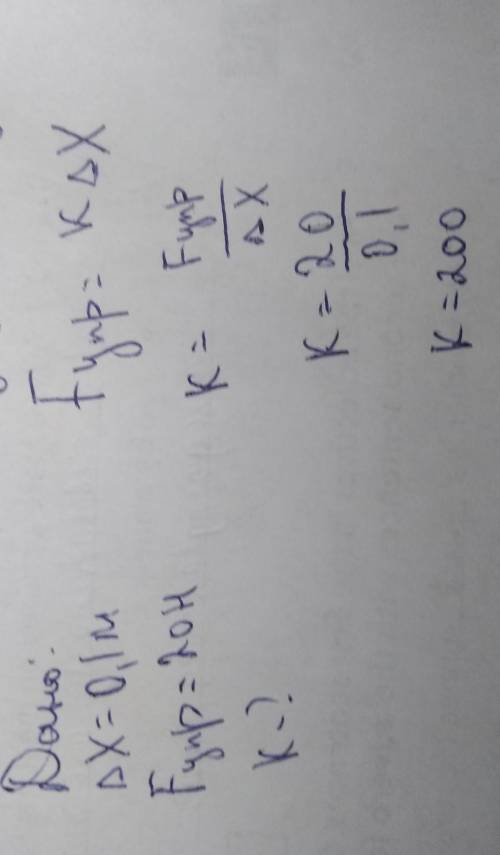 Дано:
ΔX = 0,1 м
Fупр = 20Н
K - ?
Fупр = K Δ X
K = Fупр / ΔX
K = 20 / 0,1
K = 200